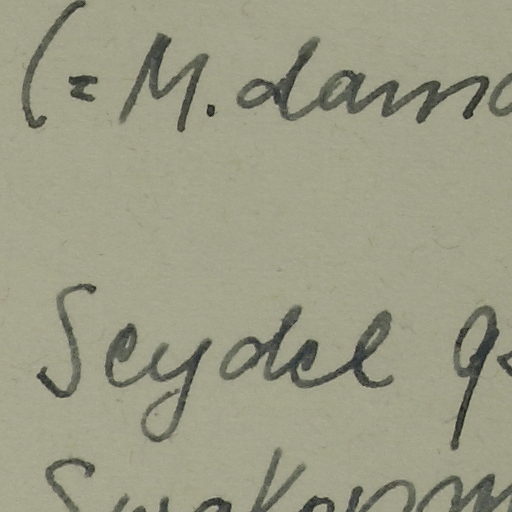 (= M. dama
Seydel 9
Swakopm